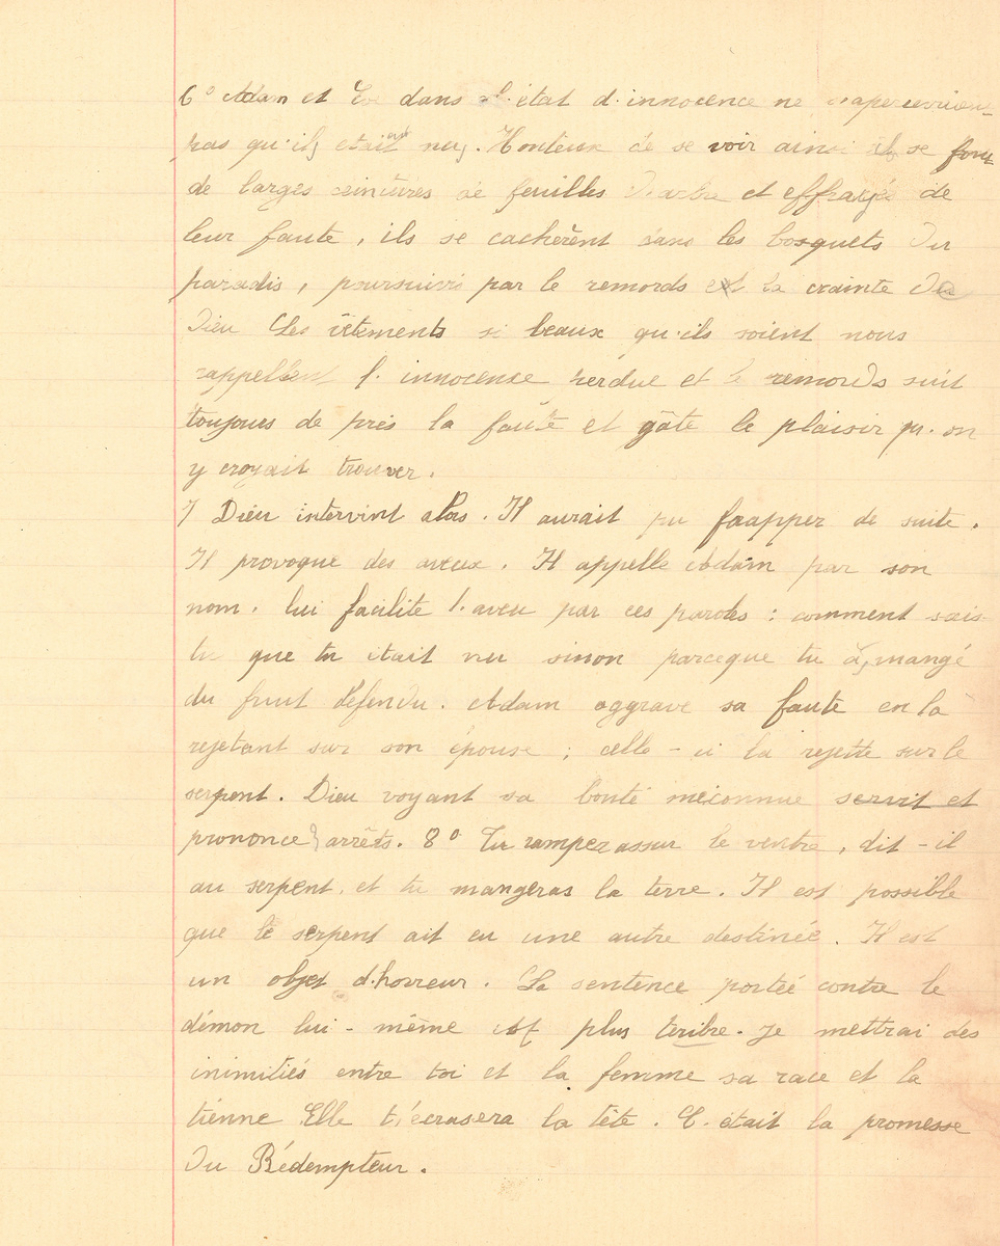 6° Adam et Eve dans l'état d'innocence ne s'apercevaient
pas qu'ils etaient nus. Honteux de se voir ainsi ils se font
de larges ceintures de feuilles d'arbre et effrayés de
leur faute, ils se cachèrent dans les bosquets du
paradis, poursuivis par le remords et la crainte de
Dieu Les vêtements si beaux qu'ils soient nous
rappellent l'innocense perdue et le remords suit
toujours de près la faute et gâte le plaisir qu'on
y croyait trouver.
7 Dieu intervint alors. Il aurait pu fraapper de suite.
Il provoque des aveux. Il appelle Adam par son
nom. lui facilite l'aveu par ces paroles : comment sais
tu que tu était nu sinon parceque tu as mangé
du fruit défendu. Adam aggrave sa faute en la
rejetant sur son épouse ; celle-ci la rejette sur le
serpent. Dieu voyant sa bonté méconnue servit et
prononce 3 arrêts. 8° Tu ramperassur le ventre, dit-il
au serpent, et tu mangeras la terre. Il est possible
que le serpent ait eu une autre destinée. Il est
un objet d'horreur. La sentence portée contre le
démon lui-même est plus teribre. Je mettrai des
inimitiés entre toi et la femme sa race et la
tienne Elle t'écrasera la tête. C'était la promesse
du Rédempteur.